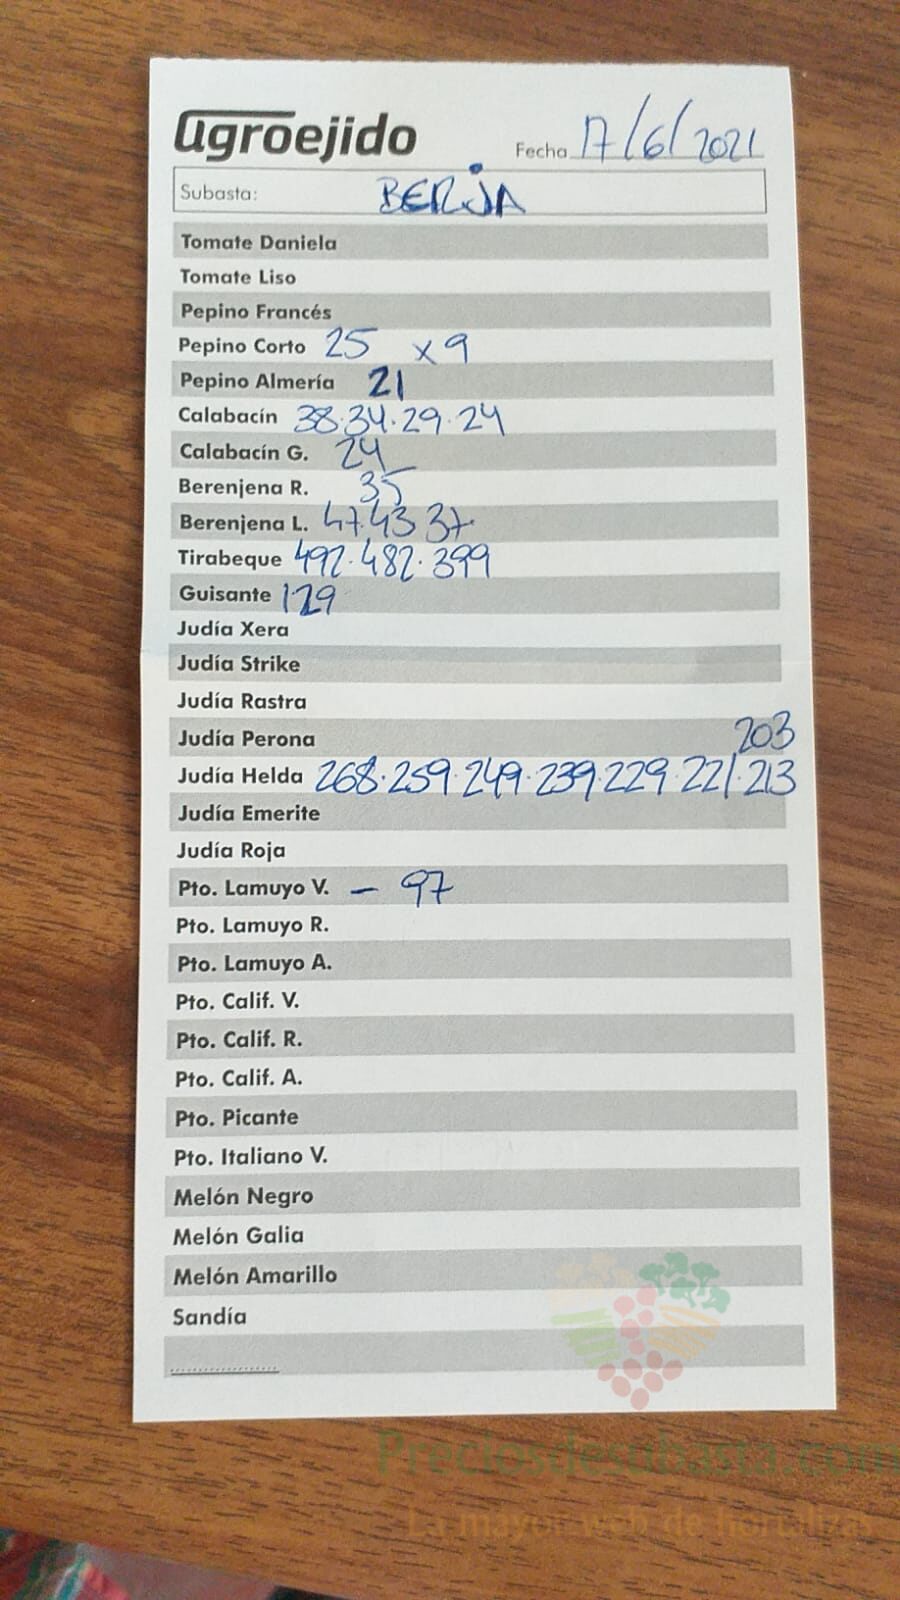 agroejido Fecha 17/6/2021
Subasta: BERJA
Tomate Daniela
Tomate Liso
Pepino Francés
Pepino Corto 25 x9
Pepino Almería 21
Calabacín 38.34.29.24
Calabacín G. 24
Berenjena R. 35
Berenjena L. 47.43 37.
Tirabeque 492.482.399
Guisante 129
Judía Xera
Judía Strike
Judía Rastra
Judía Perona 203
Judía Helda 268.259.249.239.229.221.213
Judía Emerite
Judía Roja
Pto. Lamuyo V. – 97
Pto. Lamuyo R.
Pto. Lamuyo A.
Pto. Calif. V.
Pto. Calif. R.
Pto. Calif. A.
Pto. Picante
Pto. Italiano V.
Melón Negro
Melón Galia
Melón Amarillo
Sandía
Preciosdesubasta.com
La mayor web de hortalizas